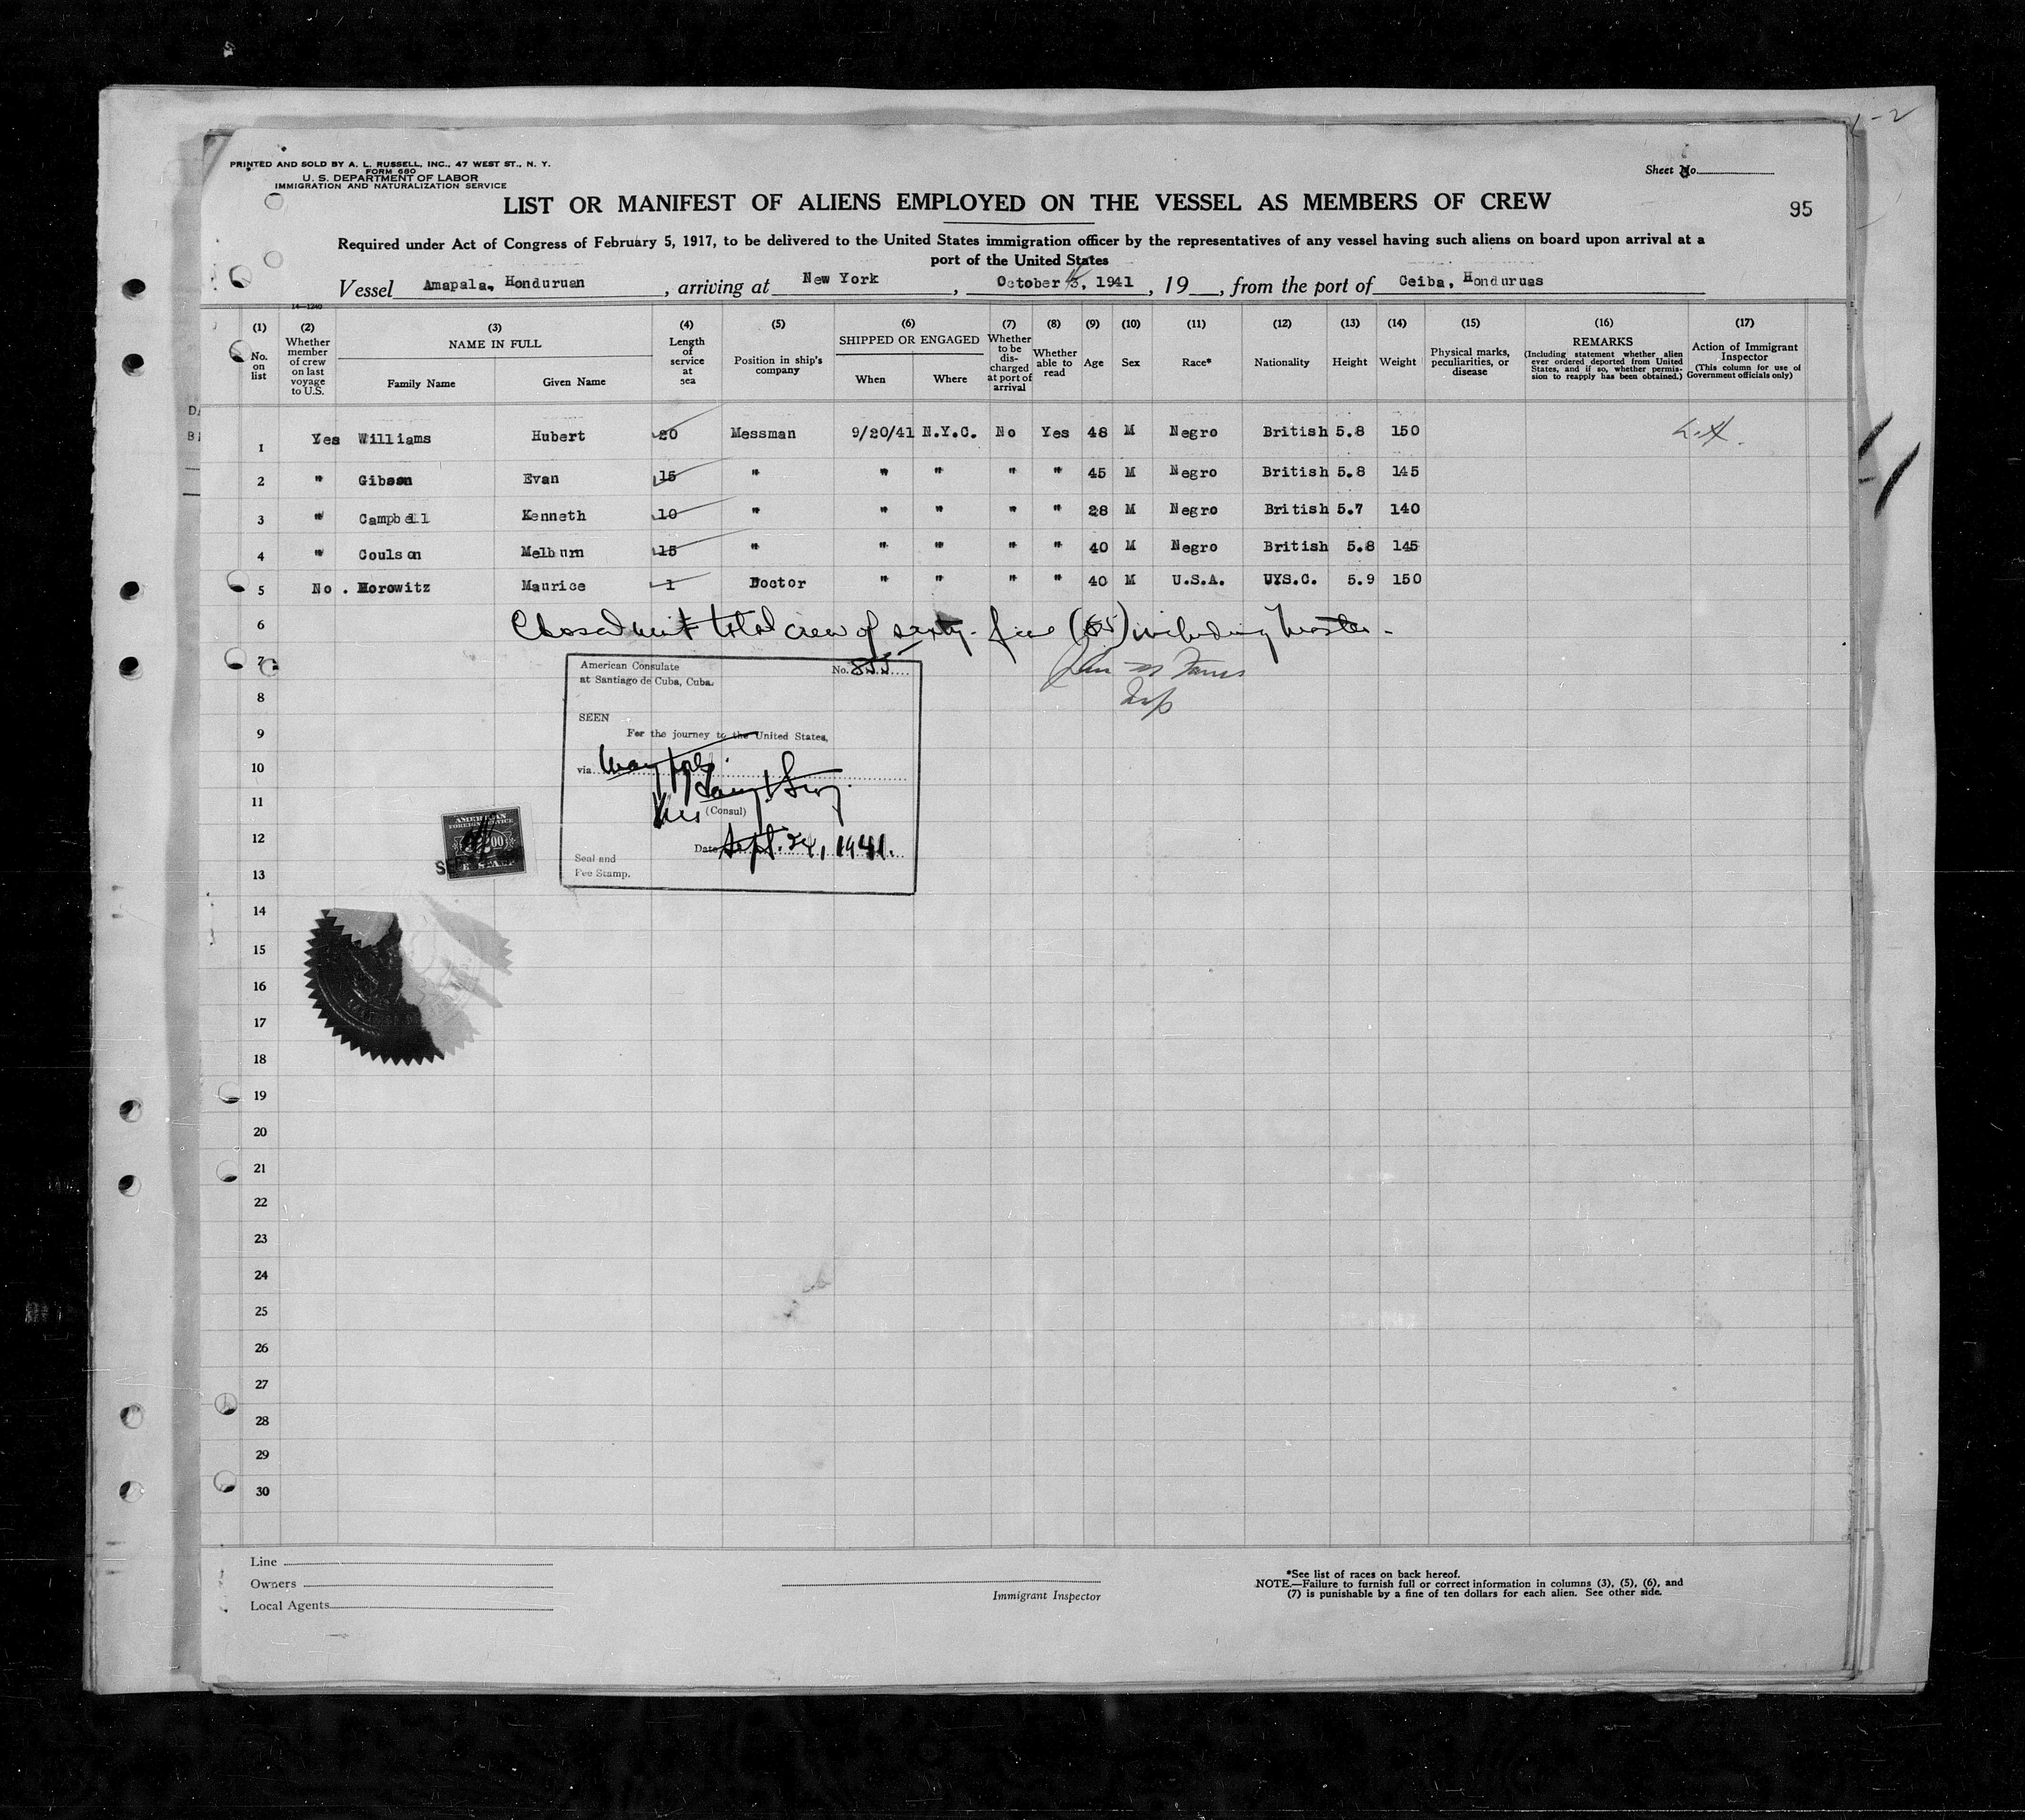 PRINTED AND SOLD BY A. L. RUSSELL, INC., 47 WEST ST., N. Y.
FORM 680
U. S. DEPARTMENT OF LABOR
IMMIGRATION AND NATURALIZATION SERVICE
Sheet No.
LIST OR MANIFEST OF ALIENS EMPLOYED ON THE VESSEL AS MEMBERS OF CREW
95
Required under Act of Congress of February 5, 1917, to be delivered to the United States immigration officer by the representatives of any vessel having such aliens on board upon arrival at a
port of the United States
Vessel Amapala, Honduruan, arriving at New York, October, 1941, 19__, from the port of Ceiba, Honduruas
14—1240
(1) (2) (3) (4) (5) (6) (7) (8) (9) (10) (11) (12) (13) (14) (15) (16) (17)
No. on list
Whether member of crew on last voyage to U.S.
NAME IN FULL
Family Name Given Name
Length of service at sea
Position in ship's company
SHIPPED OR ENGAGED
When Where
Whether to be discharged at port of arrival
Whether able to read
Age
Sex
Race*
Nationality
Height
Weight
Physical marks, peculiarities, or disease
REMARKS
(Including statement whether alien ever ordered deported from United States, and if so, whether permission to reapply has been obtained.)
Action of Immigrant Inspector
(This column for use of Government officials only)
1 Yes Williams Hubert 20 Messman 9/20/41 N.Y.C. No Yes 48 M Negro British 5.8 150
2 " Gibson Evan 15 " " " " " 45 M Negro British 5.8 145
3 " Campbell Kenneth 10 " " " " " 28 M Negro British 5.7 140
4 " Coulson Melburn 15 " " " " " 40 M Negro British 5.8 145
5 No. Horowitz Maurice 1 Doctor " " " " 40 M U.S.A. U.S.C. 5.9 150
6 Closed with total crew of sixty-five (65) including Master.
7
8
9
10
11
12
13
14
15
16
17
18
19
20
21
22
23
24
25
26
27
28
29
30
American Consulate No. 855
at Santiago de Cuba, Cuba.
SEEN
For the journey to the United States,
via
(Consul)
Date Sept. 24, 1941.
Seal and
Fee Stamp.
AMERICAN
FOREIGN SERVICE
Line
Owners
Local Agents
Immigrant Inspector
*See list of races on back hereof.
NOTE.—Failure to furnish full or correct information in columns (3), (5), (6), and
(7) is punishable by a fine of ten dollars for each alien. See other side.